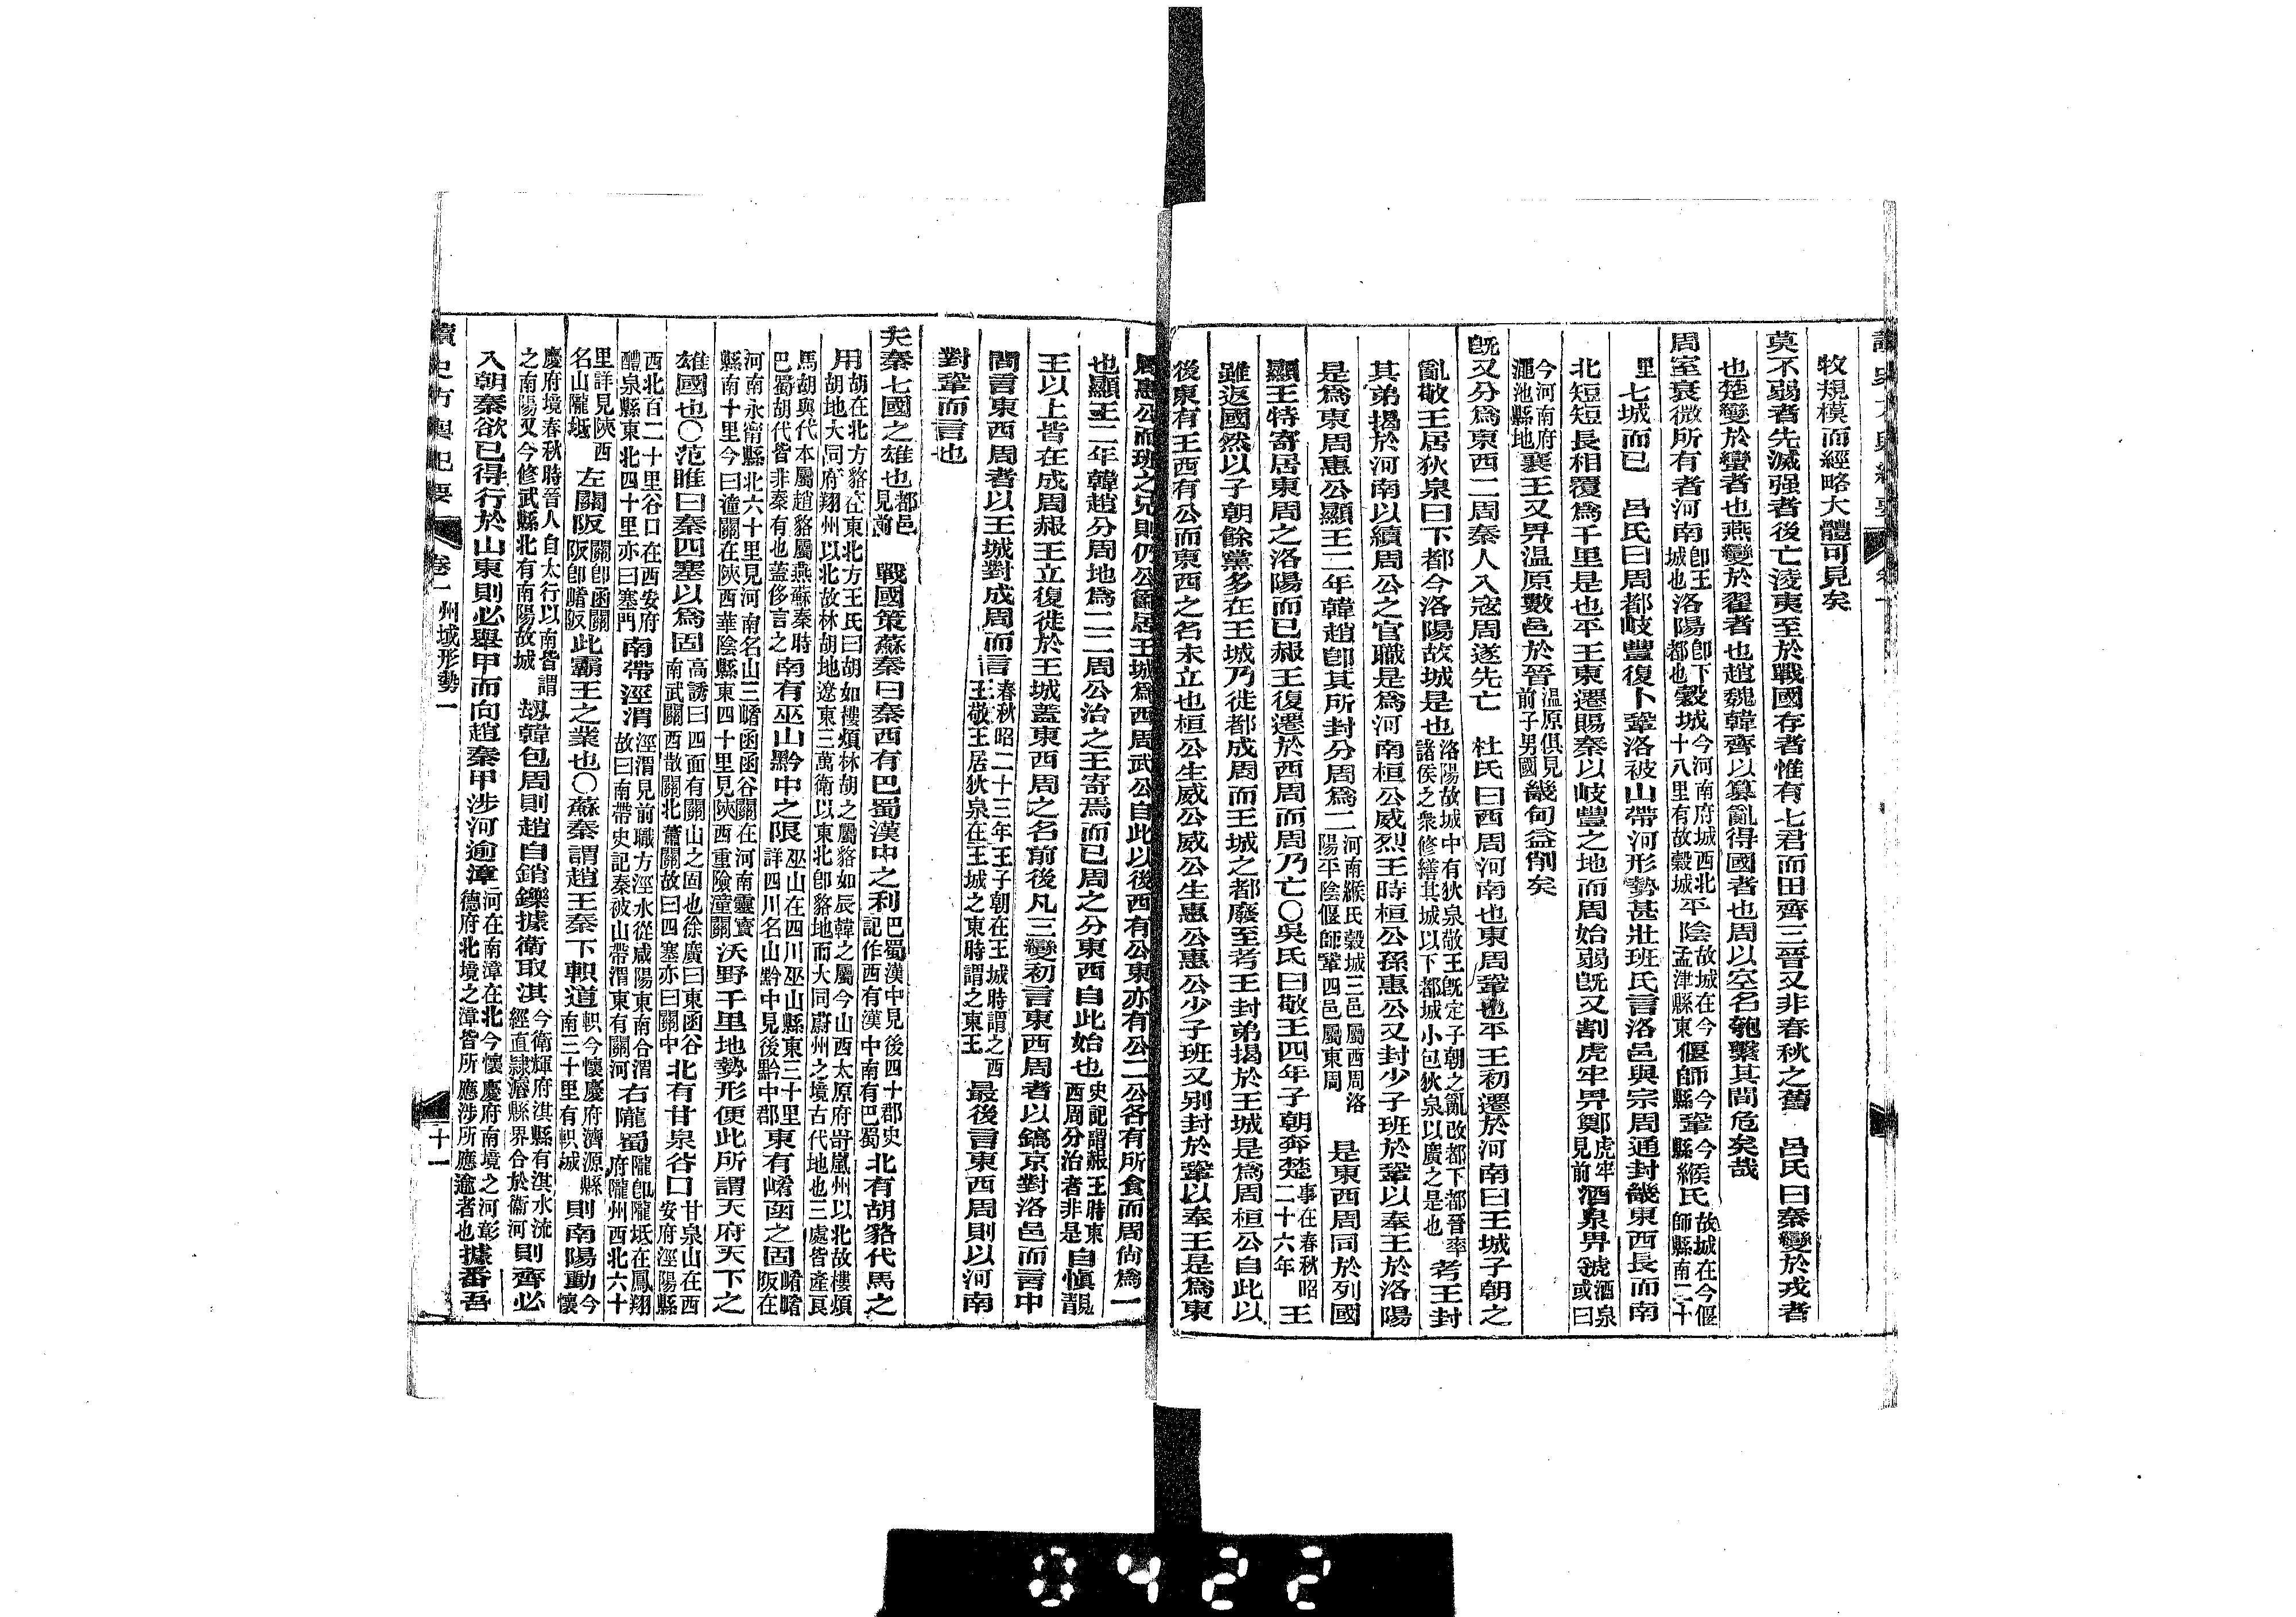 讀史方輿紀要
卷一
牧規模而經略大體可見矣
莫不弱者先滅强者後亡淩夷至於戰國存者惟有七君而田齊三晉又非春秋之舊 呂氏曰秦變於戎者
也楚變於蠻者也燕變於翟者也趙魏韓齊以篡亂得國者也周以空名匏繫其間危矣哉
周室衰微所有者河南卽王城也洛陽卽下都也穀城今河南府城西北十八里有故穀城平陰故城在今孟津縣東偃師今縣鞏今縣緱氏故城在今偃師縣南二十
里七城而已 呂氏曰周都岐豐復卜鞏洛被山帶河形勢甚壯班氏言洛邑與宗周通封畿東西長而南
北短短長相覆爲千里是也平王東遷賜秦以岐豐之地而周始弱旣又割虎牢畀鄭虎牢見前酒泉畀虢酒泉或曰
今河南府澠池縣地襄王又畀温原數邑於晉温原俱見前子男國畿甸益削矣
旣又分爲東西二周秦人入寇周遂先亡 杜氏曰西周河南也東周鞏也平王初遷於河南曰王城子朝之
亂敬王居狄泉曰下都今洛陽故城是也洛陽故城中有狄泉敬王旣定子朝之亂改都下都晉率諸侯之衆修繕其城以下都城小包狄泉以廣之是也考王封
其弟揭於河南以續周公之官職是爲河南桓公威烈王時桓公孫惠公又封少子班於鞏以奉王於洛陽
是爲東周惠公顯王二年韓趙卽其所封分周爲二河南緱氏穀城三邑屬西周洛陽平陰偃師鞏四邑屬東周 是東西周同於列國
顯王特寄居東周之洛陽而已赧王復遷於西周而周乃亡○吳氏曰敬王四年子朝奔楚事在春秋昭二十六年王
雖返國然以子朝餘黨多在王城乃徙都成周而王城之都廢至考王封弟揭於王城是爲周桓公自此以
後東有王西有公而東西之名未立也桓公生威公威公生惠公惠公少子班又别封於鞏以奉王是爲東
周惠公而班之兄則仍公爵居王城爲西周武公自此以後西有公東亦有公二公各有所食而周尚爲一
也顯王二年韓趙分周地爲二二周公治之王寄焉而已周之分東西自此始也史記謂赧王時東西周分治者非是自愼靚
王以上皆在成周赧王立復徙於王城蓋東西周之名前後凡三變初言東西周者以鎬京對洛邑而言中
間言東西周者以王城對成周而言春秋昭二十三年王子朝在王城時謂之西王敬王居狄泉在王城之東時謂之東王 最後言東西周則以河南
對鞏而言也
夫秦七國之雄也都邑見前 戰國策蘇秦曰秦西有巴蜀漢中之利巴蜀漢中見後四十郡史記作西有漢中南有巴蜀北有胡貉代馬之
用胡在北方貉在東北方王氏曰胡如樓煩林胡之屬貉如辰韓之屬今山西太原府岢嵐州以北故樓煩胡地大同府朔州以北故林胡地遼東三萬衛以東北卽貉地而大同蔚州之境古代地也三處皆產良
馬胡與代本屬趙貉屬燕蘇秦時巴蜀胡代皆非秦有也蓋侈言之南有巫山黔中之限巫山在四川巫山縣東三十里詳四川名山黔中見後黔中郡東有崤函之固崤崤阪在
河南永甯縣北六十里見河南名山三崤函函谷關在河南靈寶縣南十里今曰潼關在陝西華陰縣東四十里見陝西重險潼關沃野千里地勢形便此所謂天府天下之
雄國也○范睢曰秦四塞以爲固高誘曰四面有關山之固也徐廣曰東函谷南武關西散關北蕭關故曰四塞亦曰關中北有甘泉谷口甘泉山在西安府涇陽縣
西北百二十里谷口在西安府醴泉縣東北四十里亦曰塞門南帶涇渭涇渭見前職方涇水從咸陽東南合渭故曰南帶史記秦被山帶渭東有關河右隴蜀隴卽隴坻在鳳翔府隴州西北六十
里詳見陝西名山隴坻左關阪關卽函關阪卽崤阪此霸王之業也○蘇秦謂趙王秦下軹道軹今懷慶府濟源縣南三十里有軹城則南陽動今懷
慶府境春秋時晉人自太行以南皆謂之南陽又今修武縣北有南陽故城 刼韓包周則趙自銷鑠據衛取淇今衛輝府淇縣有淇水流經直隸濬縣界合於衞河則齊必
入朝秦欲已得行於山東則必舉甲而向趙秦甲涉河逾漳河在南漳在北今懷慶府南境之河彰德府北境之漳皆所應涉所應逾者也據番吾
讀史方輿紀要
卷一 州域形勢一
十一
0422